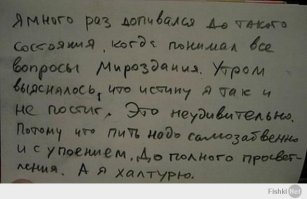 Я много раз допивался до такого
состояния, когда понимал все
вопросы Мироздания. Утром
выяснялось, что истину я так и
не постиг. Это неудивительно.
Потому что пить надо самозабвенно
и с упоением. До полного просвет-
ления. А я халтурю.
Fishki.Net